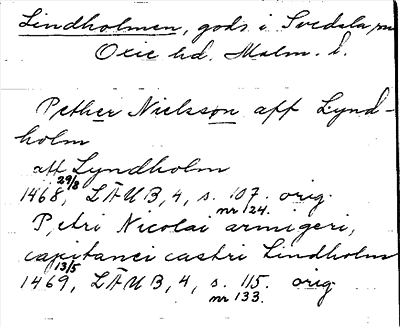 Lindholmen, gods i Svedala sn
Oxie hd. Malm. l.
Pether Nielsson aff Lynd-
holm
aff Lyndholm
1468 29/8, LÄUB, 4, s. 107. orig.
nr 124.
Petri Nicolai armigeri,
capitanei castri Lindholm
1469 13/5, LÄUB, 4, s. 115. orig
nr 133.